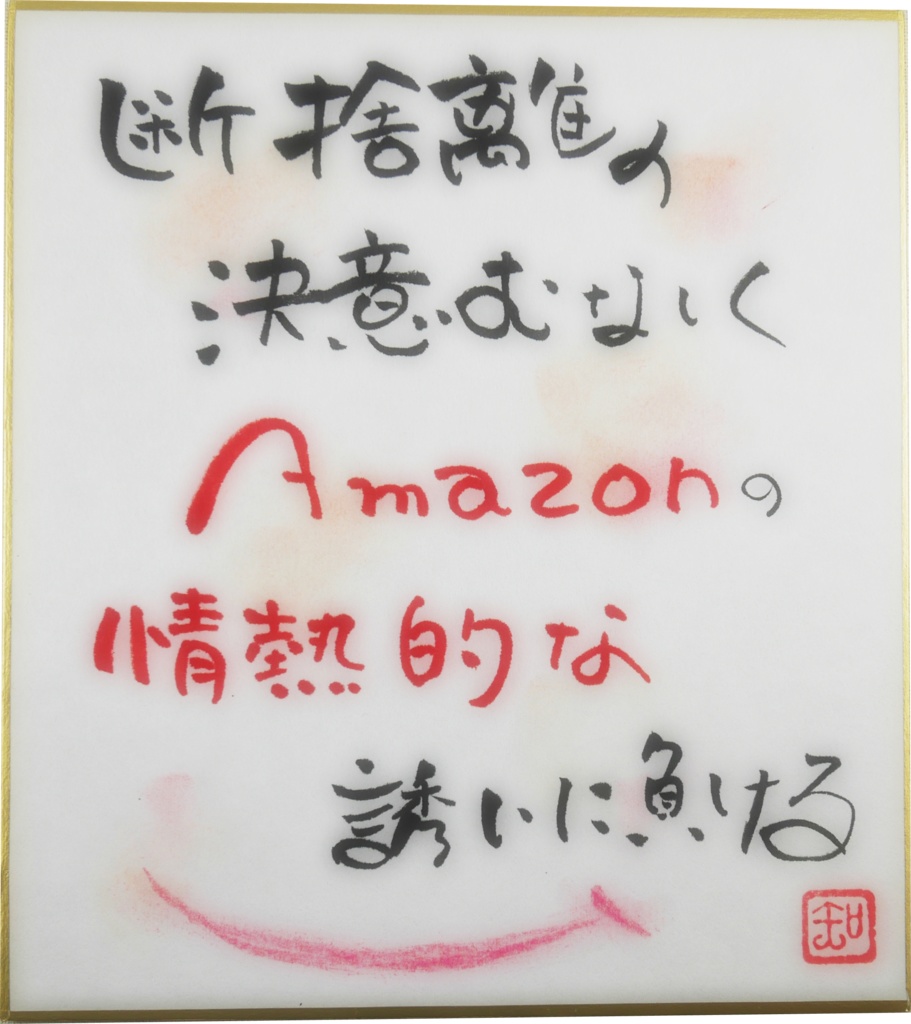 断捨離の
決意むなしく
Amazonの
情熱的な
誘いに負ける
知